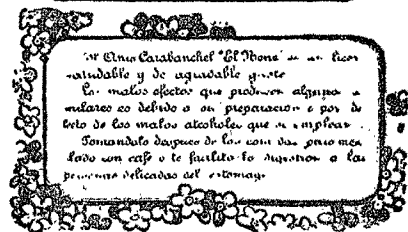 Anis Carabanchel "El Mono" es un licor
saludable y de agradable gusto
Los malos efectos que producen algunos
milares es debido a su preparacion o por de
fecto de los malos alcoholes que se emplear
Tomandolo despues de las comidas, puro mez
clado con cafe o te facilita la digestion a las
personas delicadas del estomago